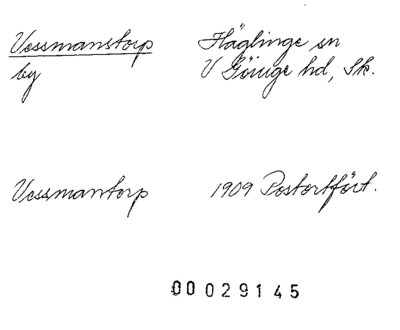 Vessmanstorp Häglinge sn
by V Göinge hd, Sk.
Vessmantorp 1909 Postortfört.
00 029145